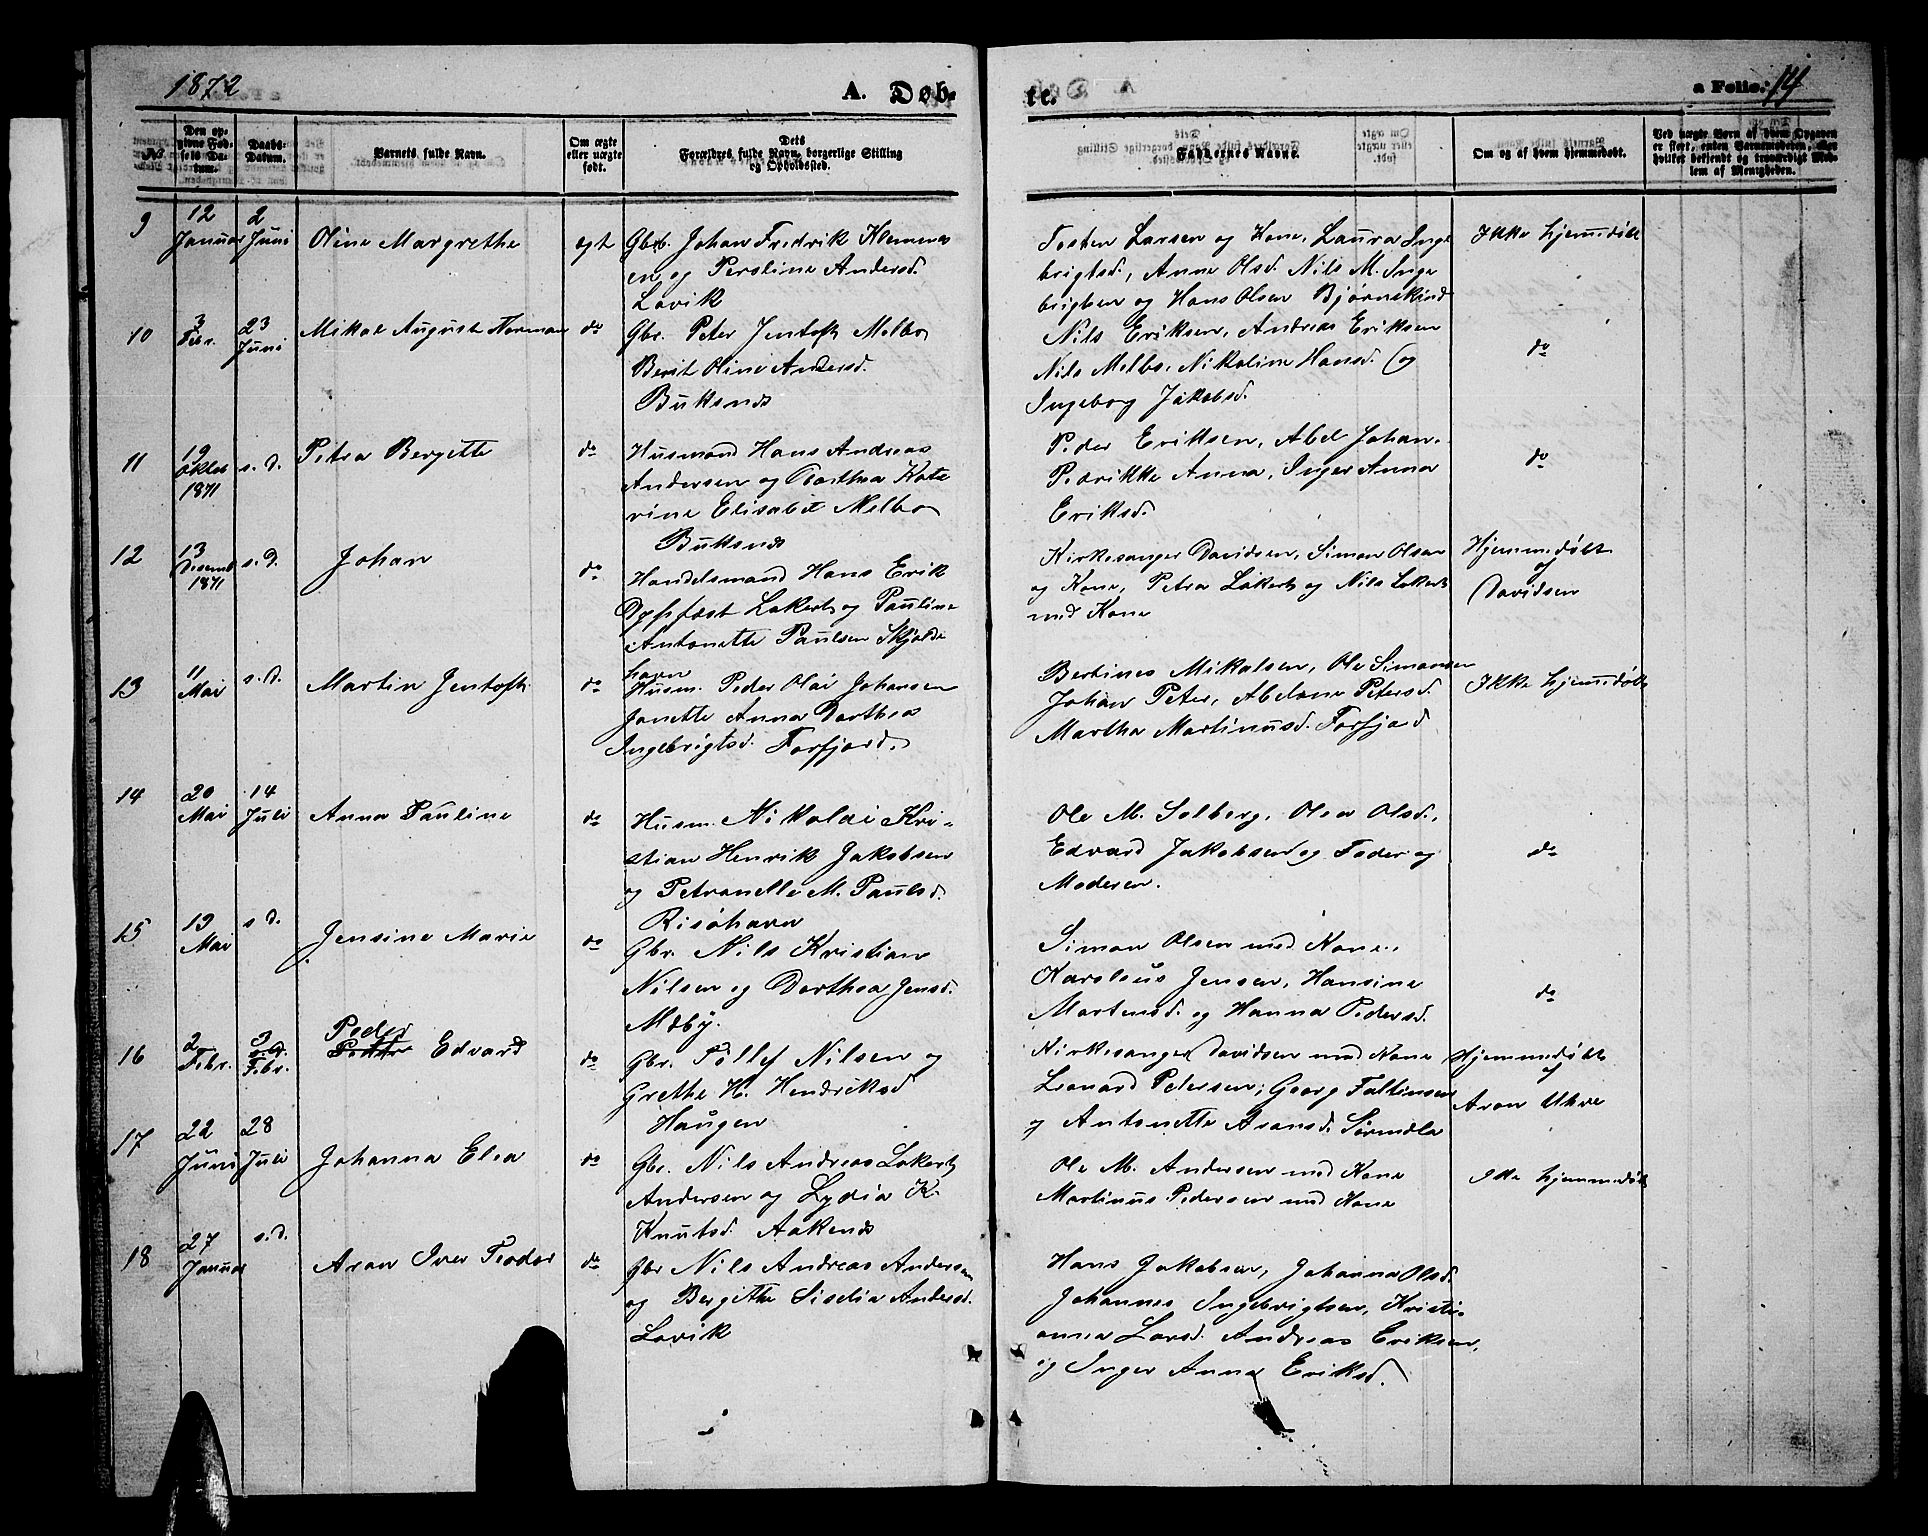 1872
A. Døb-
te.
a Folio: 14
No
Den opgivne Fødsels Datum.
Daabs-Datum.
Barnets fulde Navn.
Om ægte eller uægte født.
Dets Forældres fulde Navn, borgerlige Stilling og Opholdssted.
Faddernes Navne.
Om og af hvem hjemmedøbt.
Ved uægte Børn af hvem Opgaven er skeet, enten Barnemoderen, eller hvilket bekjendt og troværdigt Medlem af Menigheden.
9 12 Januar 2 Juni Oline Margrethe egt Gbr. Johan Fredrik Klemens
en og Peroline Andersd.
Lovik
Tosten Larsen og Kone, Laura Inge
brigtsd, Anne Olsd. Nils M. Inge
brigtsen og Hans Olsen Bjørnskind
Ikke hjemmedøbt
10 3 Febr. 23 Juni Mikal August Norman do Gbr. Peter Jentoft Melbo
Berit Oline Andersd.
Buksnes
Nils Eriksen, Andreas Eriksen
Nils Melbo, Nikoline Hansd. og
Ingeborg Jakobsd.
do
11 19 Oktob 1871 s. d. Petra Bergitte do Husmand Hans Andreas
Andersen og Dorthea Kata
rine Elisabet Melbo
Buksnes
Peder Eriksen, Abel Johan.
Pedrikke Anna, Inger Anna
Eriksd.
do
12 13 Desemb 1871 s. d. Johan do Handelsmand Hans Erik
Lokert og Pauline
Antonette Paulsen Skjolde
havn
Kirkesanger Davidsen, Simon Olsen
og Kone, Petra Lokert og Nils Lokert
med Kone
Hjemmedøbt
af
Davidsen
13 11 Mai s. d. Martin Jentoft do Husm. Peder Olai Johansen
Janette Anna Dorthea
Ingebrigtsd. Forfjord.
Bertines Mikalsen, Ole Simonsen
Johan Peter, Abelone Petersd.
Martha Martinusd. Forfjord
Ikke hjemmedøbt
14 20 Mai 14 Juli Anna Pauline do Husm. Nikolai Kri-
stian Henrik Jakobsen
og Petranelle M. Paulsd.
Risøhavn
Ole M. Solberg, Olea Olsd.,
Edvard Jakobsen og Fader og
Moderen.
do
15 19 Mai s. d. Jensine Marie do Gbr. Nils Kristian
Nilsen og Dorthea Jensd.
Meby.
Simon Olsen med Kone,
Karoleus Jensen, Hansine
Martensd. og Hanna Pedersd.
do
16 2 Febr. 3 Febr. Peder Edvard do Gbr. Tollef Nilsen og
Grethe H. Hendriksd
Haugen
Kirkesanger Davidsen med Kone
Leonard Pedersen, Georg Faltinsen
og Antonette Aronsd. Sørmela
Hjemmedøbt
af
Aron Uhre
17 22 Juni 28 Juli Johanna Elea do Gbr. Nils Andreas Lokert
Andersen og Lydia K.
Knutsd. Aaknes
Ole M. Andersen med Kone
Martinus Pedersen med Kone
Ikke hjemmedøbt
18 27 Januar s. d. Aron Iver Teodor do Gbr Nils Andreas Andersen
og Bergithe Siselia Andersd.
Lovik
Hans Jakobsen, Johanna Olsd.
Johannes Ingebrigtsen, Kristi-
anna Larsd. Andreas Eriksen,
og Inger Anna Eriksd.